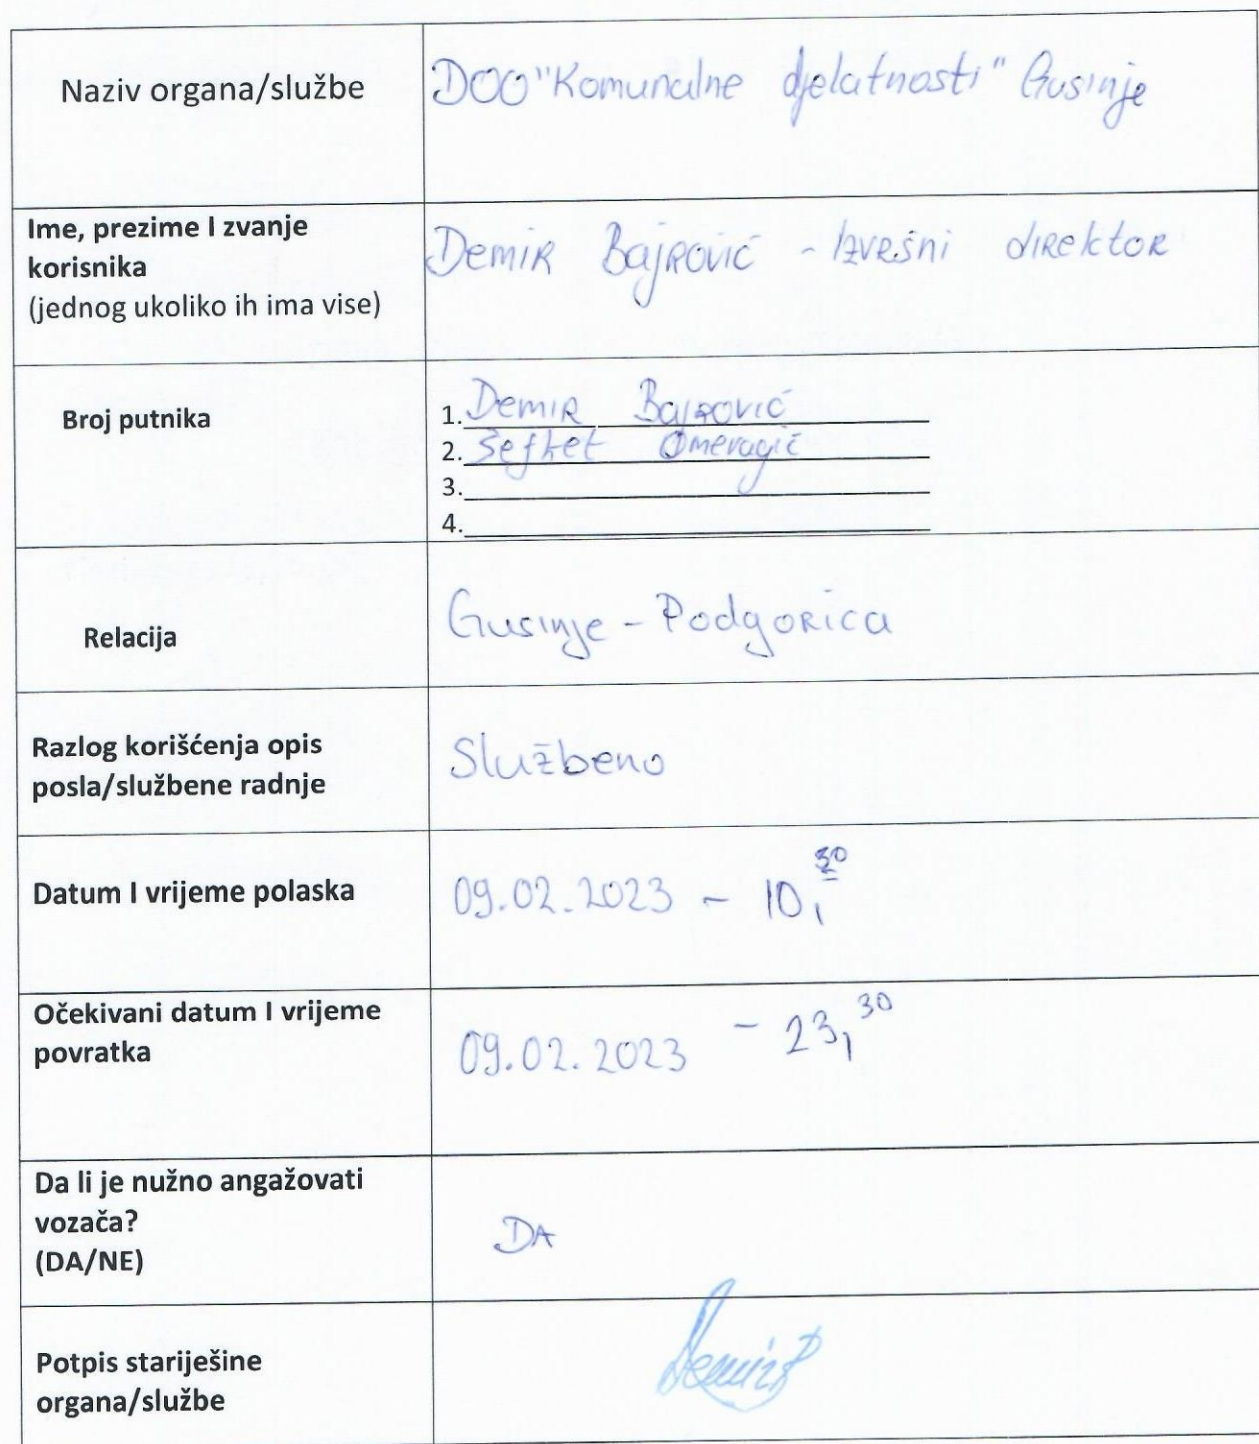 Naziv organa/službe
DOO "Komunalne djelatnosti" Gusinje
Ime, prezime I zvanje
korisnika
(jednog ukoliko ih ima vise)
Demir Bajrović - Izvešni direktor
Broj putnika
1. Demir Bajrović
2. Šefket Omeragić
3.
4.
Relacija
Gusinje - Podgorica
Razlog korišćenja opis
posla/službene radnje
Službeno
Datum I vrijeme polaska
09.02.2023 - 10,30
Očekivani datum I vrijeme
povratka
09.02.2023 - 23,30
Da li je nužno angažovati
vozača?
(DA/NE)
DA
Potpis starješine
organa/službe
Demir B